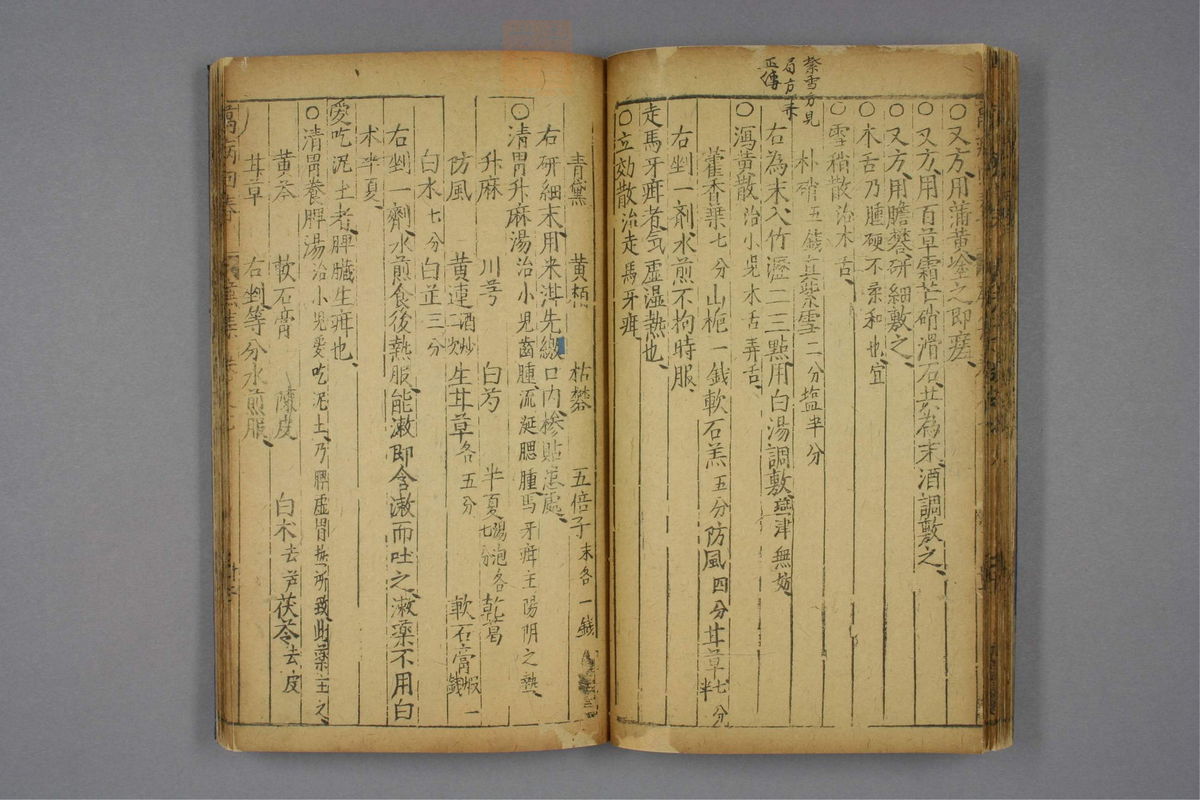 紫雪方見
局方木
正傳
○又方、用蒲黃塗之即瘥、
○又方、用百草霜芒硝滑石共為末、酒調敷之、
○又方、用膽礬研細敷之、
○木舌乃腫硬不柔和也、宜
○雪稍散治木舌、
朴硝五錢真紫雪二分塩半分
右為末入竹瀝二三點用白湯調敷、嚥津無妨
○瀉黃散治小兒木舌弄舌、
藿香葉七分山梔一錢軟石羔五分防風四分甘草七分半
右剉一劑水煎不拘時服、
走馬牙疳者、氣虚湿熱也、
○立効散治走馬牙疳、
青黛 黃栢 枯礬 五倍子末各一錢
右研細末、用米泔先繳口內、摻貼患處、
○清胃升麻湯治小児齒腫流涎腮腫馬牙疳主陽明之熱、
升麻 川芎 白芍 半夏湯泡各七分 乾葛
防風 黃連酒炒二次 生甘草各五分 軟石膏煅一錢
白朮七分白芷三分
右剉一劑水煎食後熱服、能漱即含漱而吐之、漱藥不用白
朮半夏、
愛吃泥土者、脾臓生疳也、
○清胃養脾湯治小児愛吃泥土、乃脾虚胃热所致、此藥主之、
黃芩 軟石膏 陳皮 白朮去芦茯苓去皮
甘草 右剉等分水煎服、
萬病回春